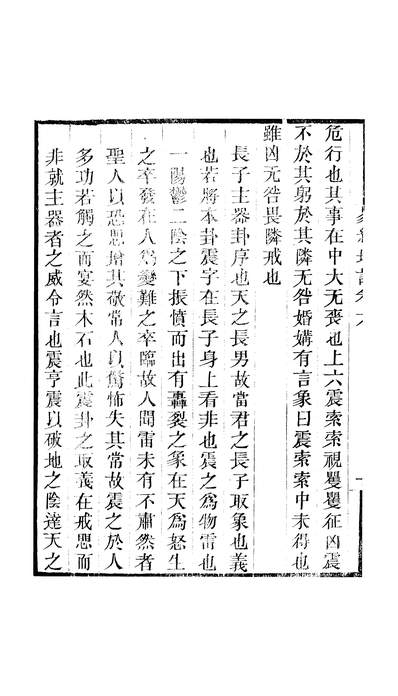 危行也其事在中大无喪也上六震索索視矍矍征凶震
不於其躬於其隣无咎婚媾有言象曰震索索中未得也
雖凶无咎畏隣戒也
長子主器卦序也天之長男故當君之長子取象也義
也若將本卦震字在長子身上看非也震之爲物雷也
一陽鬱二陰之下振憤而出有轟裂之象在天爲怒生
之卒發在人爲變難之卒臨故人聞雷未有不肅然者
聖人以恐懼增其敬常人以驚怖失其常故震之於人
多功若觸之而宴然木石也此震卦之取義在戒懼而
非就主器者之威令言也震亨震以破地之陰達天之